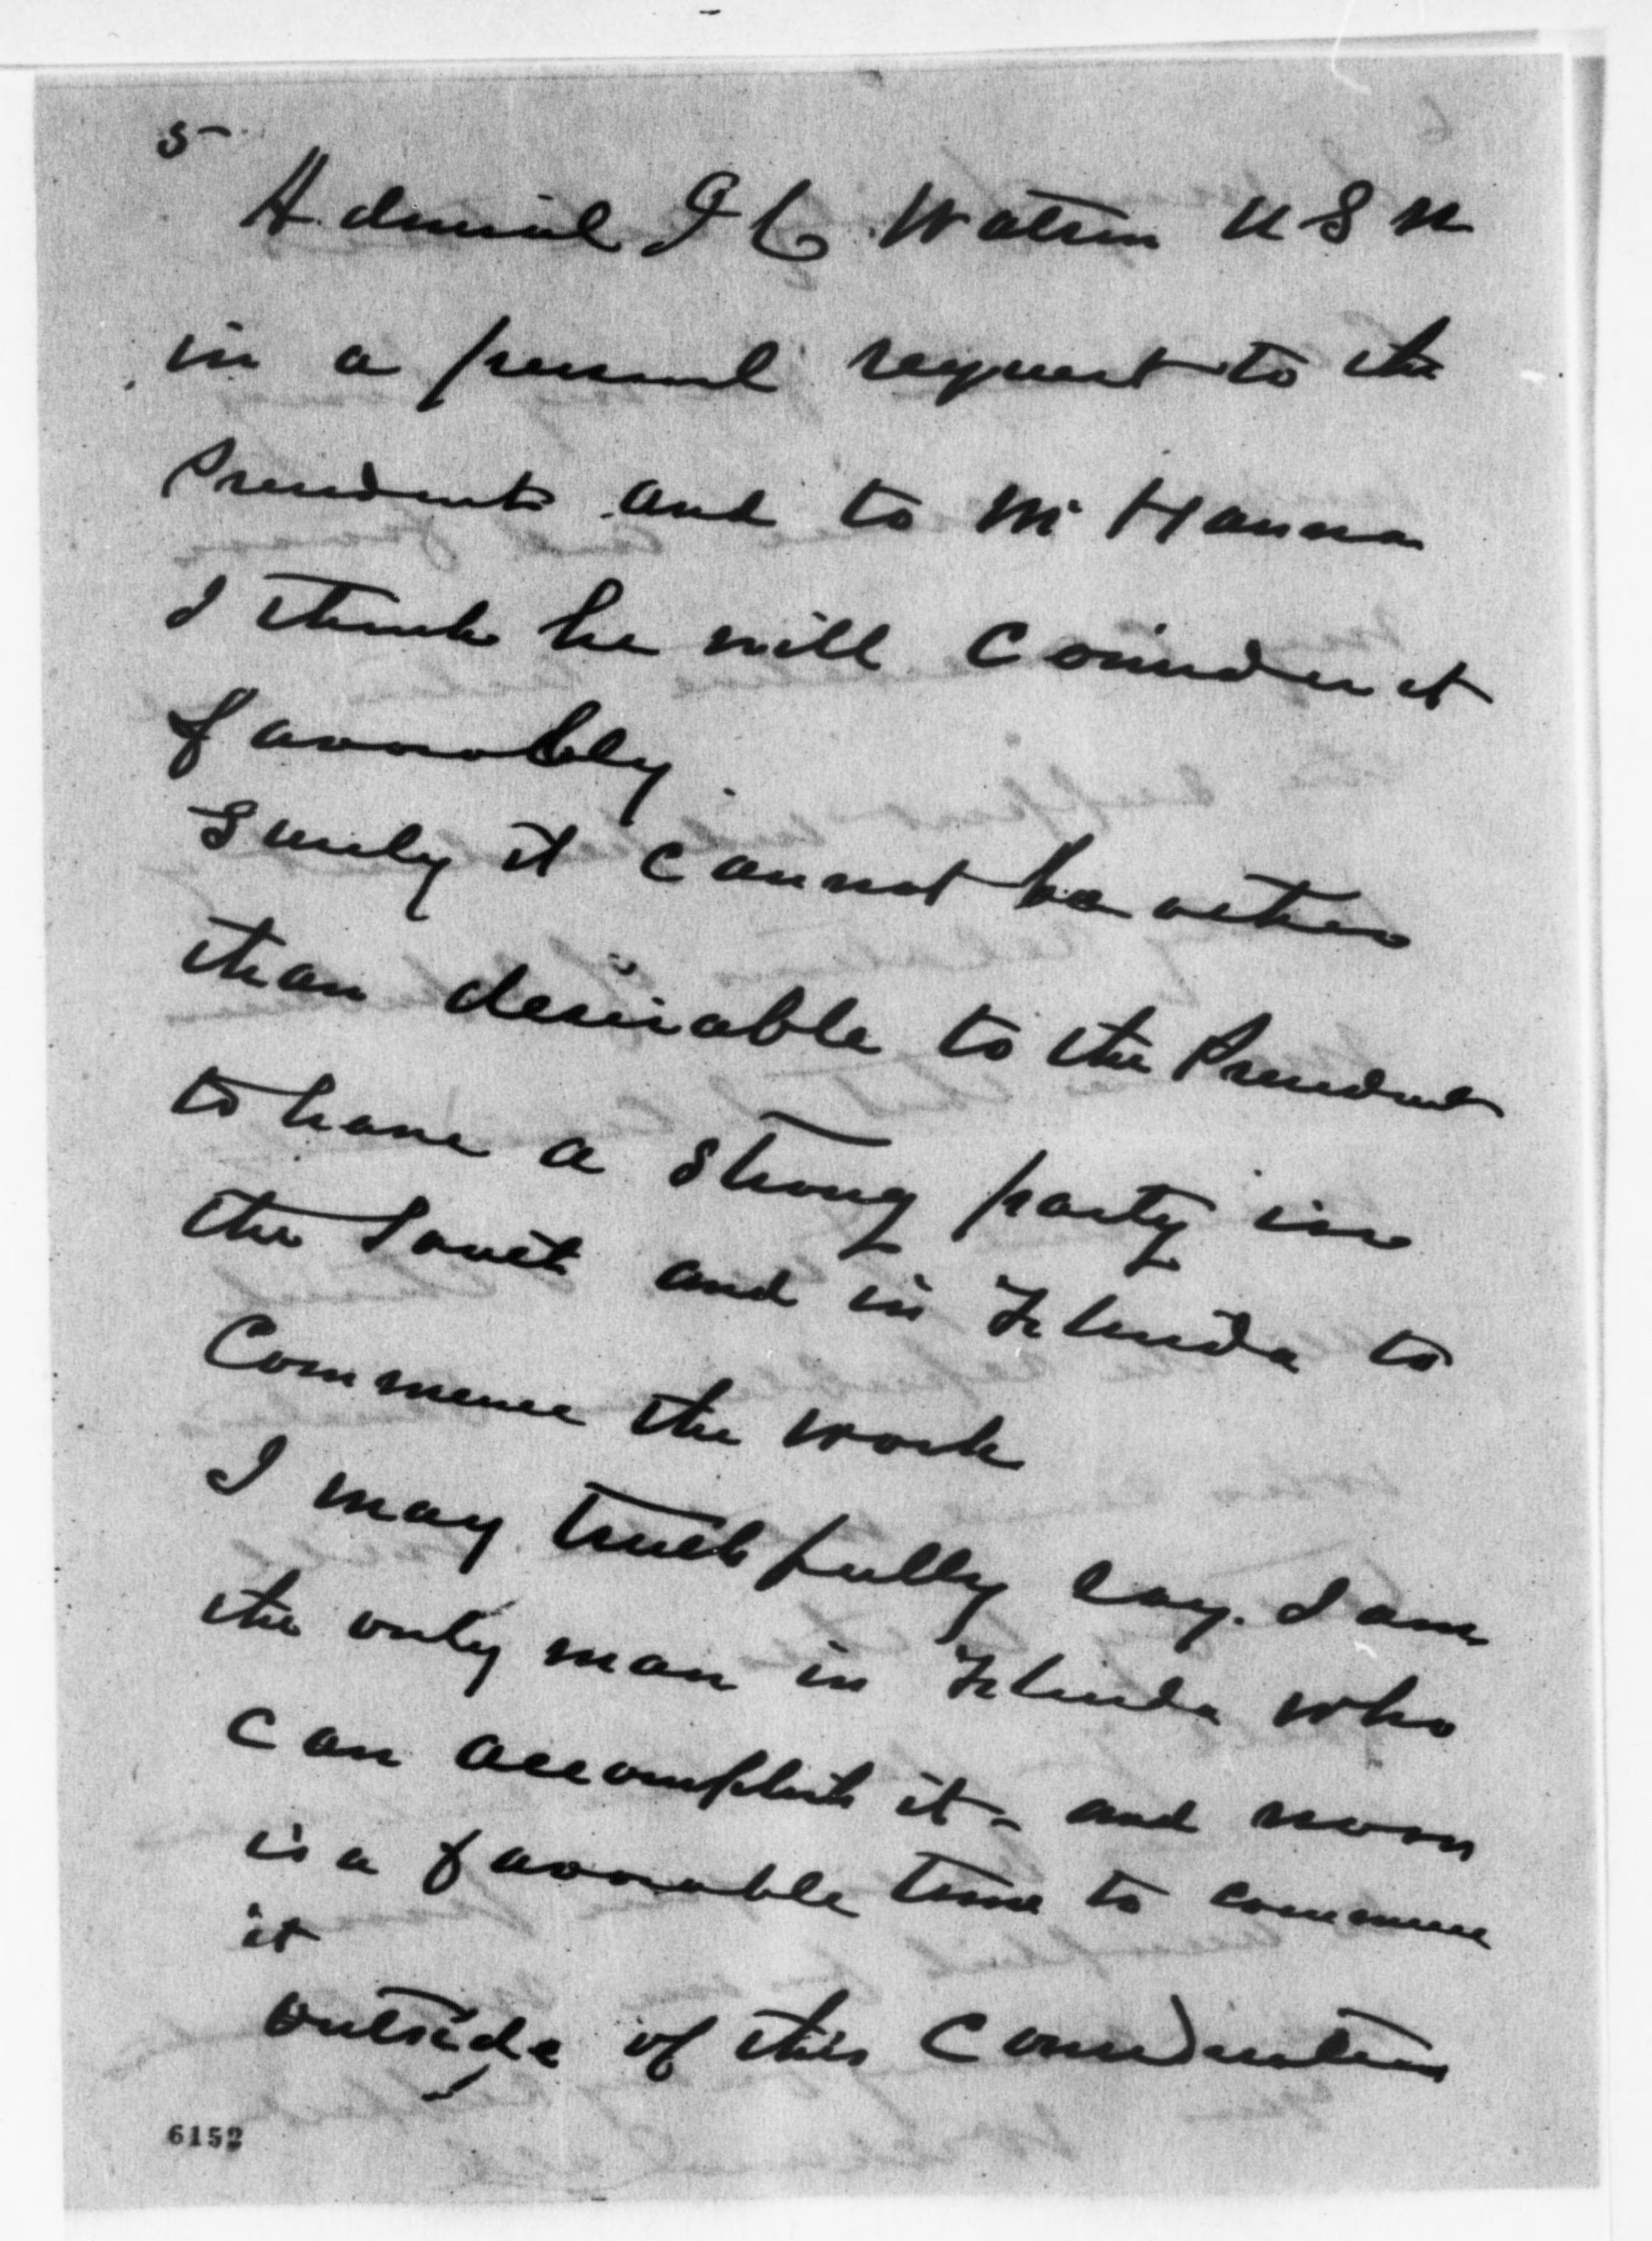 5
Admiral J C Watson U S N
in a personal request to the
President and to Mr Hanna
I think he will consider it
favorably.
Surely it cannot be other
than desirable to the President
to have a strong party in
the South and in Florida to
Commence the work
I may truthfully say. I am
the only man in Florida who
can accomplish it - and now
is a favorable time to commence
it
outside of this Consideration
6152